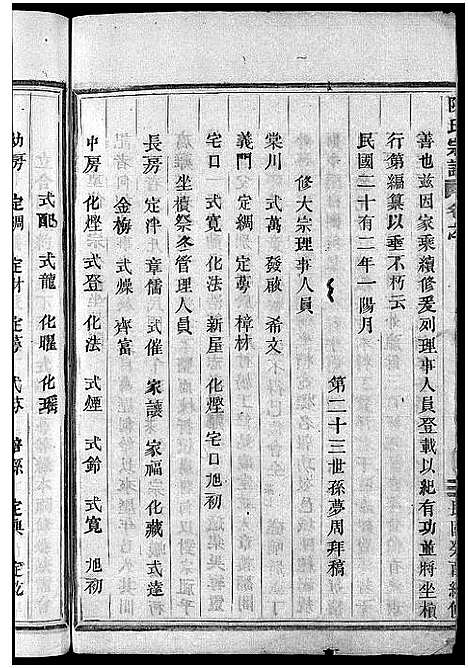 陳氏宗譜
善也茲因家乘續修爰列理事人員登載以紀有功並將坐積
行第編纂以垂不朽云
民國二十有二年一陽月
第二十三世孫夢周拜稿
修大宗理事人員
棠川 式萬 發啟 希文
義門 定綱 定蓴 樟材
宅口 式寬 化法 新屋 化煙 宅口旭初
坐積祭冬管理人員
長房 定泮 章儒 式催 家讓 家福 化藏 式達
金梅 式燥 齊富
中房 化煙 式登 化法 式煙 式鈴 式寬 旭初
式配 式龍 化躍 化瑤
幼房 定綱 定材 定蓴